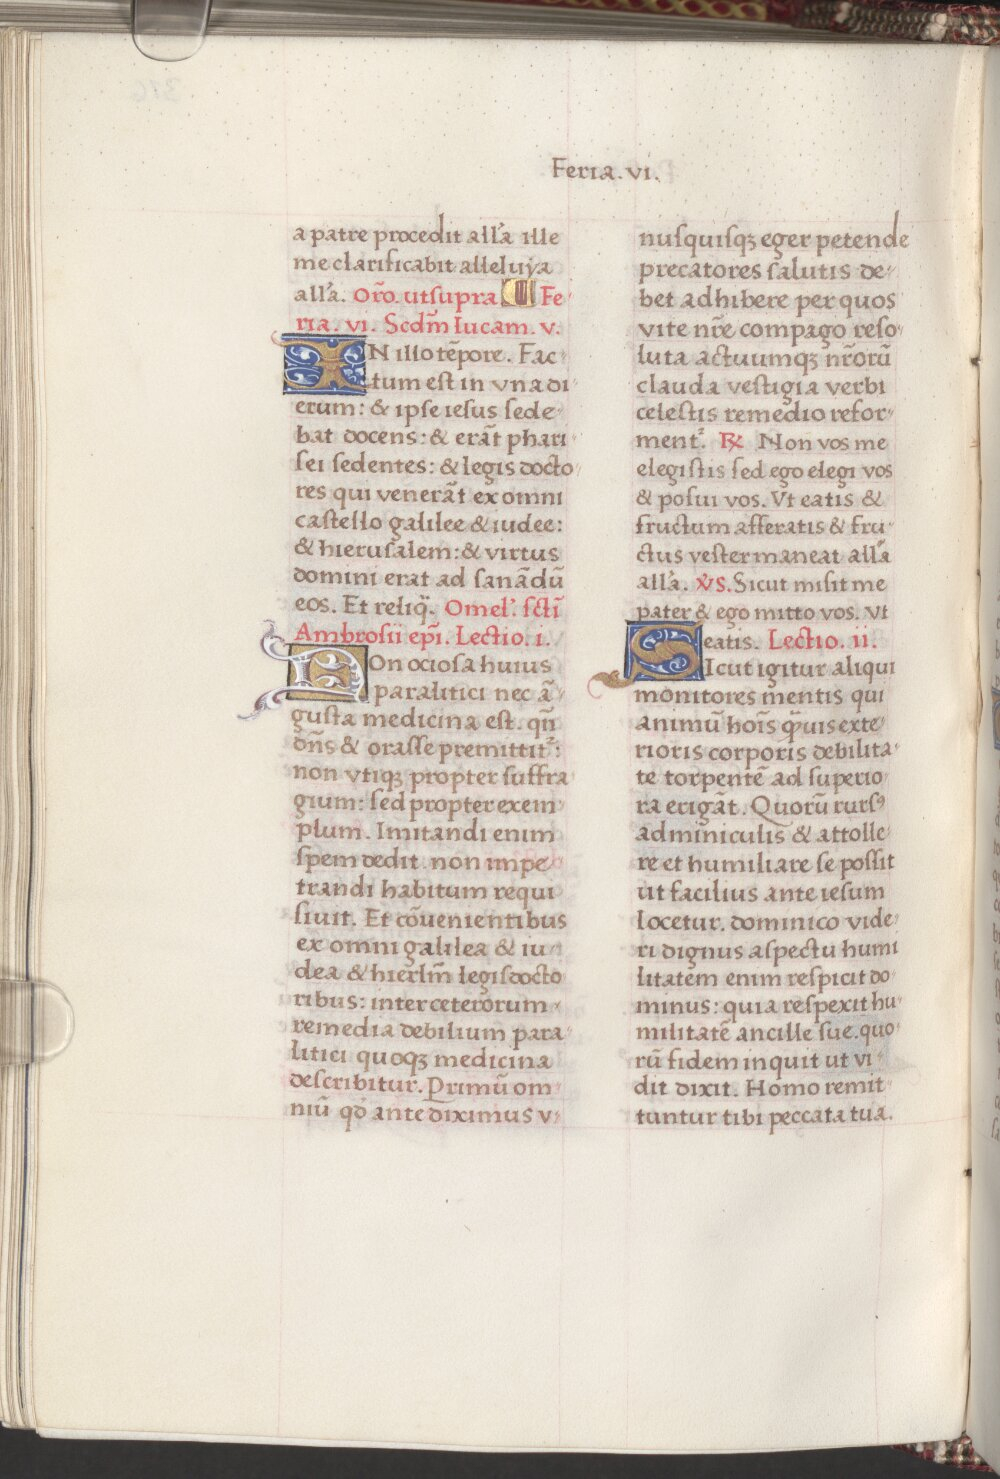 Feria. vi.
a patre procedit all'a ille
me clarificabit alleluya
all'a. Orō. utsupra Fe
ria. vi. Scdm̄ lucam. v.
IN illo tēpore. Fac
tum est in vna di
erum: & ipse iesus sede
bat docens: & erāt phari
sei sedentes: & legis docto
res qui venerāt ex omni
castello galilee & iudee:
& hierusalem: & virtus
domini erat ad sanādū
eos. Et reliq̄. Omel'. sctī
Ambrosii epī. Lectio. i.
NOn ociosa huius
paralitici nec ā
gusta medicina est. qn̄
dn̄s & orasse premittit᷑:
non vtiqꝫ propter suffra
gium: sed propter exem
plum. Imitandi enim
spem dedit. non impe
trandi habitum requi
siuit. Et cōuenientibus
ex omni galilea & iu
dea & hierlm̄ legisdocto
ribus: inter ceterorum
remedia debilium para
litici quoqꝫ medicina
describitur. Primū om
niū qd' ante diximus v
nusquisqꝫ eger petende
precatores salutis de
bet adhibere per quos
vite nr̄e compago reso
luta actuumqꝫ nr̄orū
clauda vestigia verbi
celestis remedio refor
ment᷑. ℟ Non vos me
elegistis sed ego elegi vos
& posui vos. Vt eatis &
fructum afferatis & fru
ctus vester maneat all'a
all'a. V̄S. Sicut misit me
pater & ego mitto vos. Vt
eatis. Lectio. ii.
SIcut igitur aliqui
monitores mentis qui
animū hoīs q̄uis exte
rioris corporis debilita
te torpentē ad superio
ra erigāt. Quorū rursꝰ
adminiculis & attolle
re et humiliare se possit
ut facilius ante iesum
locetur. dominico vide
ri dignus aspectu humi
litatem enim respicit do
minus: quia respexit hu
militatē ancille sue. quo
rū fidem inquit ut vi
dit dixit. Homo remit
tuntur tibi peccata tua.